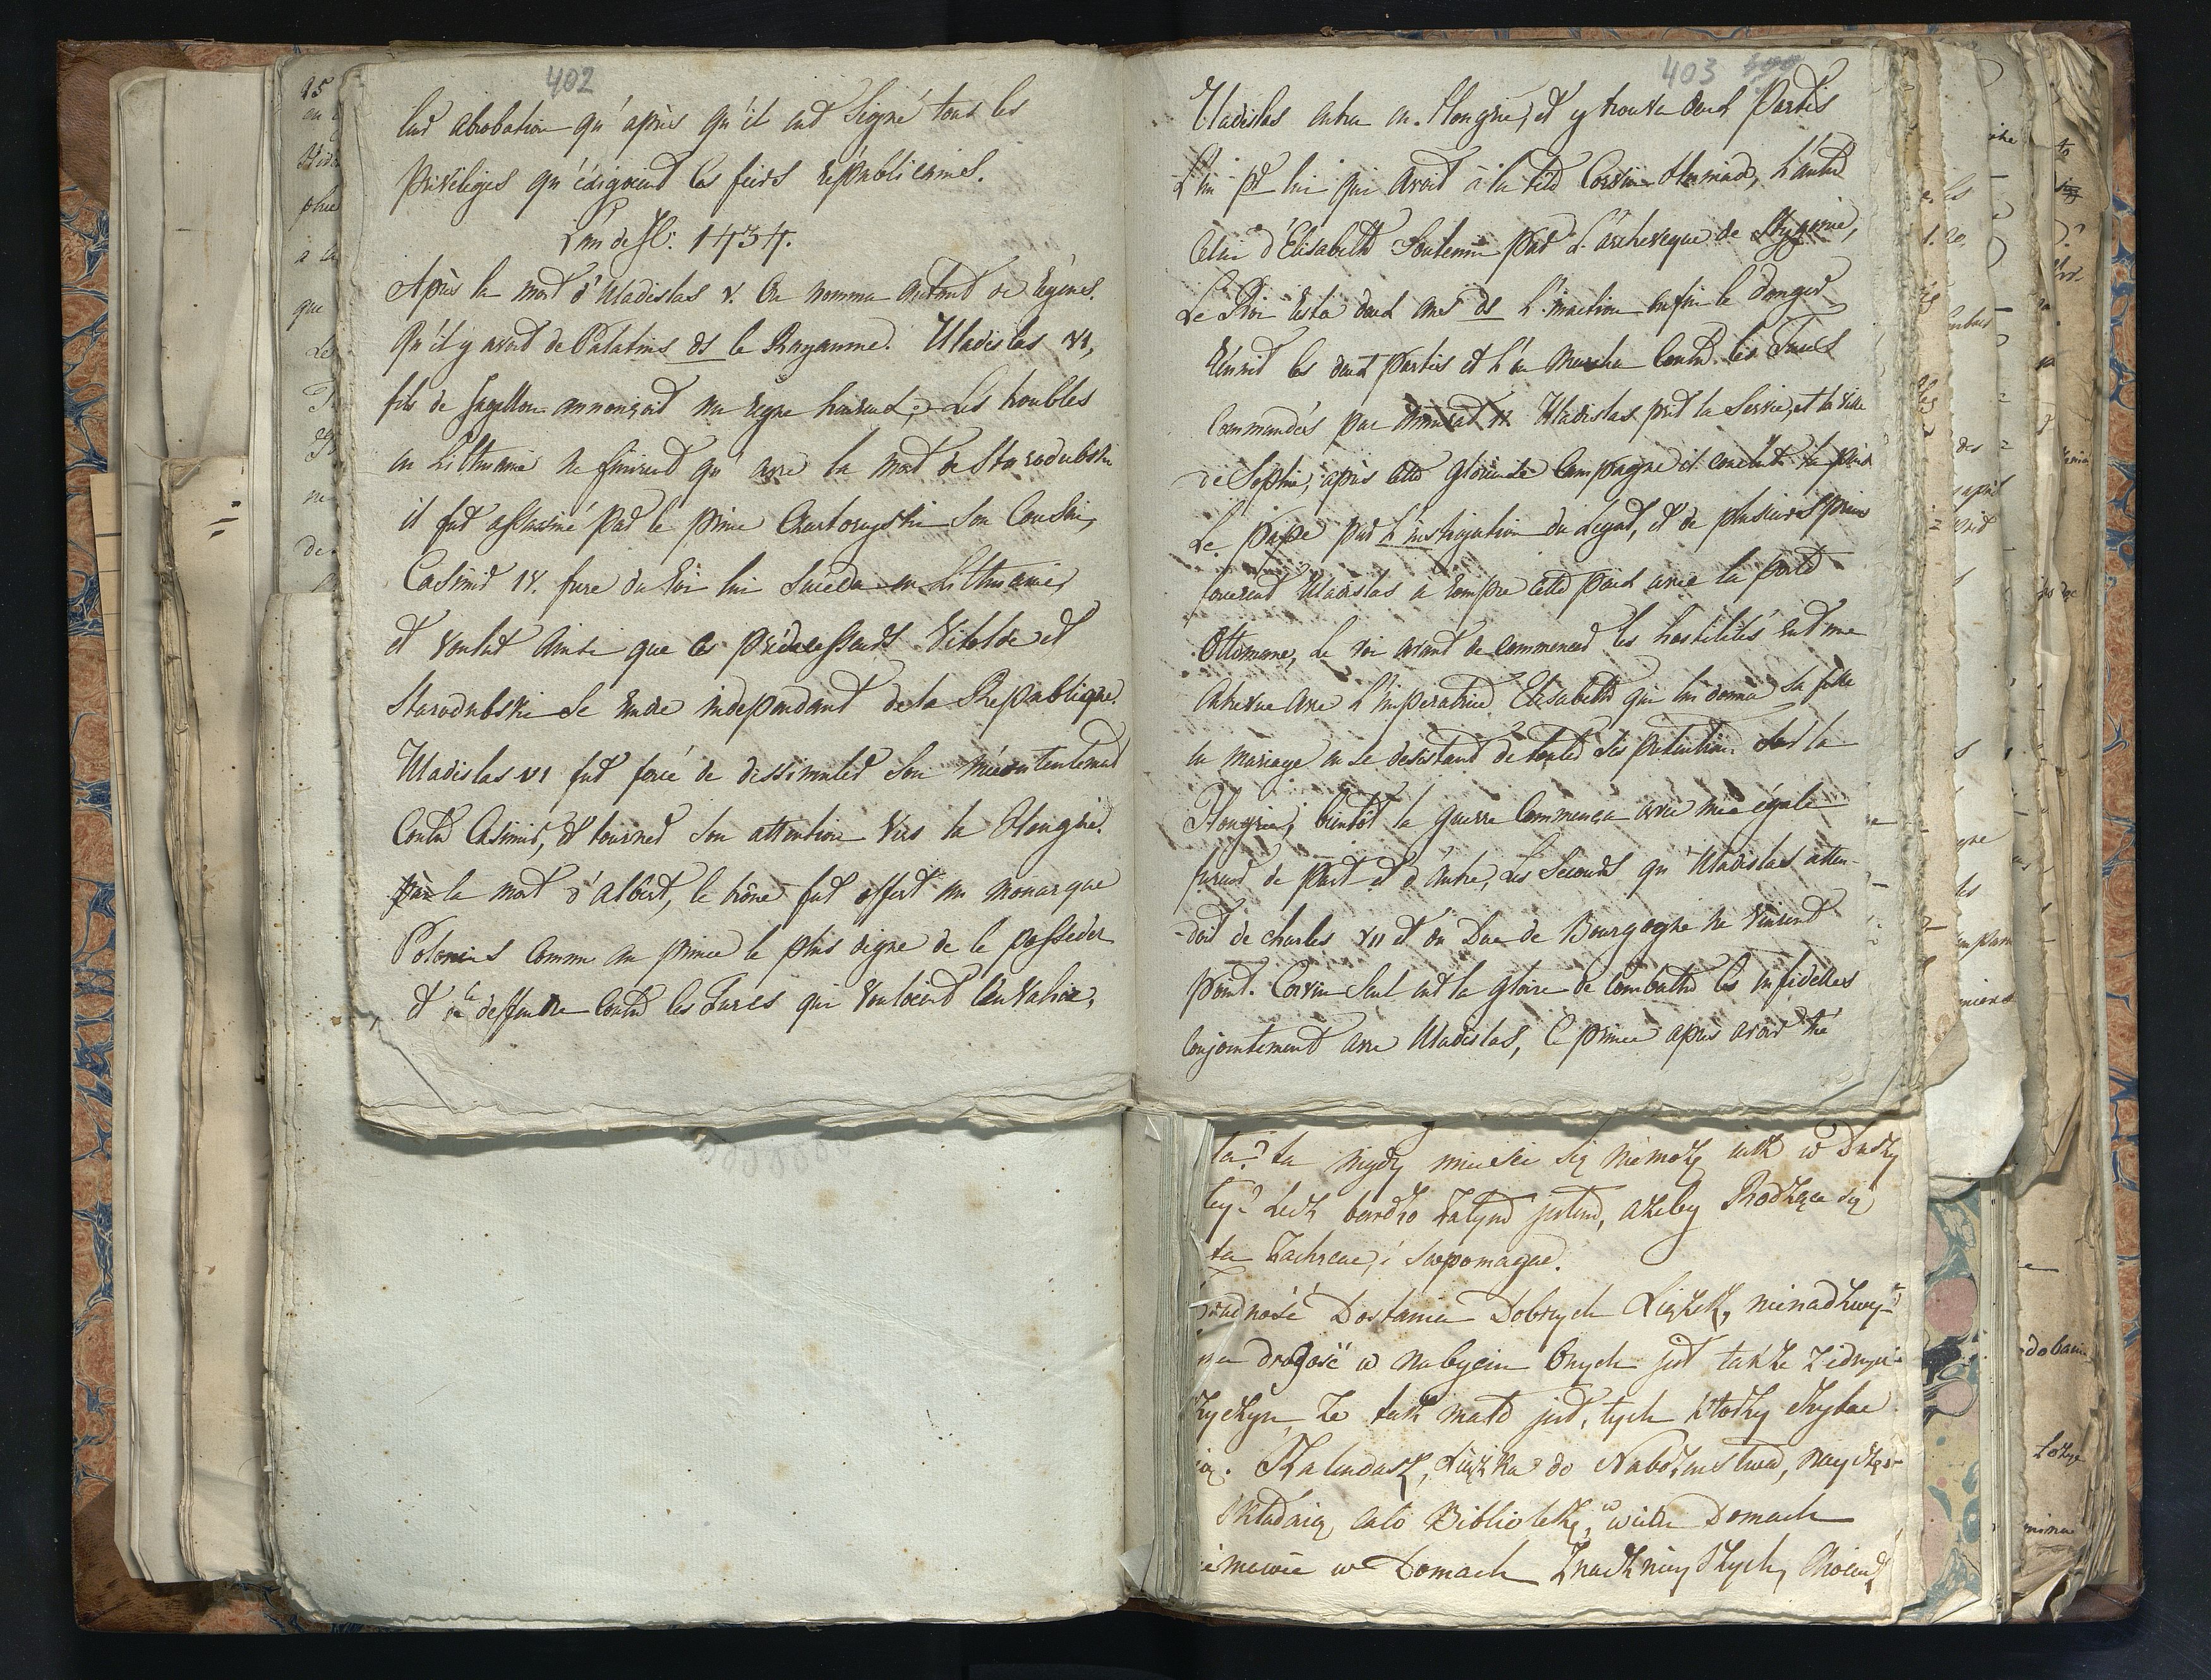 402
leur abrobation qu'après qu'il eut Signé tout les
privileges qu'éxigoient les fiers républicains.
L'an de JC: 1434.
Après la mort d'Uladislas V. On nomma autant de Régens.
Qu'il y avoit de Palatins ds le Royaume. Uladislas VI,
fils de Jagellon annonçoit un regne heureux; Les troubles
en Lithuanie ne finirent qu'avec la mort de Starodubski
il fut assassiné par le prince Czartoryski son Cousin,
Casimir IV. frere du Roi lui succeda en Lithuanie,
et voulut ainsi que ces prédecesseurs Vitolde et
Starodubski se rendre independant de la Republique.
Uladislas VI fut forcé de dissimuler son mécontentement
Contre Casimir, et tourner son attention vers la Hongrie.
par la mort d'Albert, le trône fut offert au monarque
Polonais comme au prince le plus digne de le posseder
et de la deffendre contre les Turcs qui vouloient l'envahir,
403
Uladislas entra en Hongrie, et y trouva deux Partis
L'un pr lui qui avoit à la tête Corvin Huniad, L'autre
Celui d'Elisabeth Soutenu par L'archeveque de
Le Roi resta deux ans ds L'inaction enfin le danger
réunit les deux partis et l'on marcha contre les Turcs
Commandés par Amurat II Uladislas prit la Servie, et la ville
de Sophie, après cette glorieuse Campagne il conclut la paix
Le pape par L'instigation du Legat, et de plusieurs princes
forcerent Uladislas a rompre cette paix avec la porte
Ottomane, Le roi avant de commencer les hostilités eut une
entrevue avec L'imperatrice Elisabeth qui lui donna sa fille
en mariage en se desistant de toutes ses pretentions sur la
Hongrie; bientôt la guerre Commença avec une égale
fureur de part et d'autre, Les Secours qu'Uladislas atten-
-doit de charles VII et du Duc de Bourgogne ne vinrent
point. Corvin seul eut la gloire de combattre les infidelles
conjointement avec Uladislas, Ce prince apres avoir tué
ta? ta nigdy mieścić się niemoże iak w Duszy
tey? Lecz bardzo
ta Zachęcać, i wspomagać.
Dostania Dobrych Xiążek, nienadzwy-
drogość w nabyciu Onych jest także z iednych
że tak mało jest, tych którzy czytać
Kalendarz, Xiążka do Nabożeństwa, nayczęś-
Składaią całą Bibliotekę, w wielu Domach
w Domach znacznieyszych,